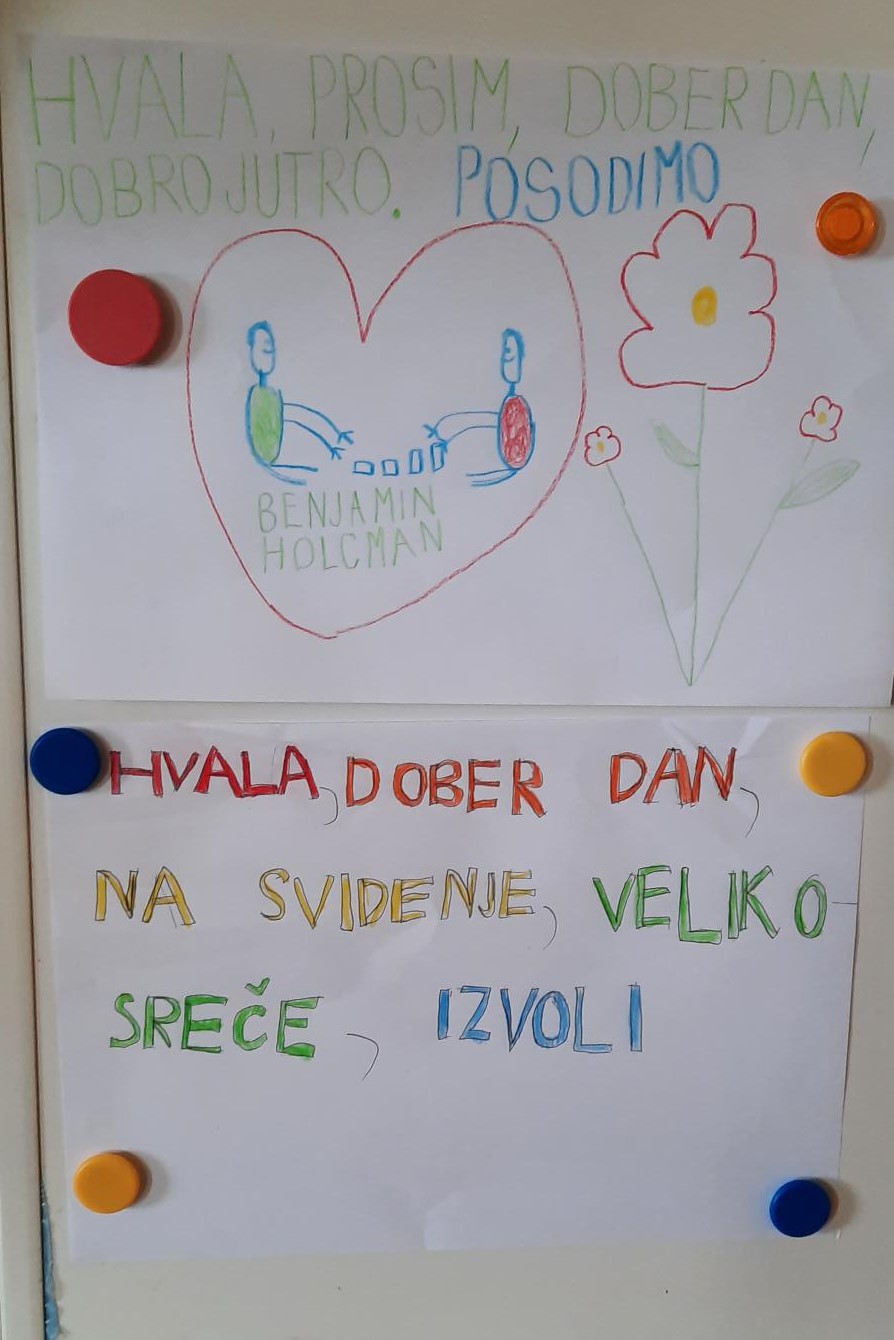 HVALA, PROSIM, DOBER DAN,
DOBRO JUTRO. POSODIMO
BENJAMIN
HOLCMAN
HVALA, DOBER DAN,
NA SVIDENJE, VELIKO
SREČE, IZVOLI